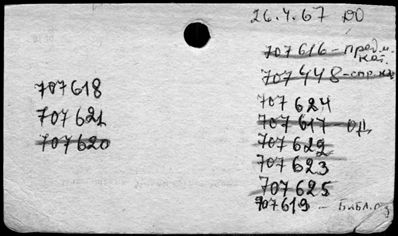 26.4.67 DO
707616 - предм. кат.
707448 - спр.
707618
707621
707620
707624
707617
707622
707623
707625
707619 - Библ.